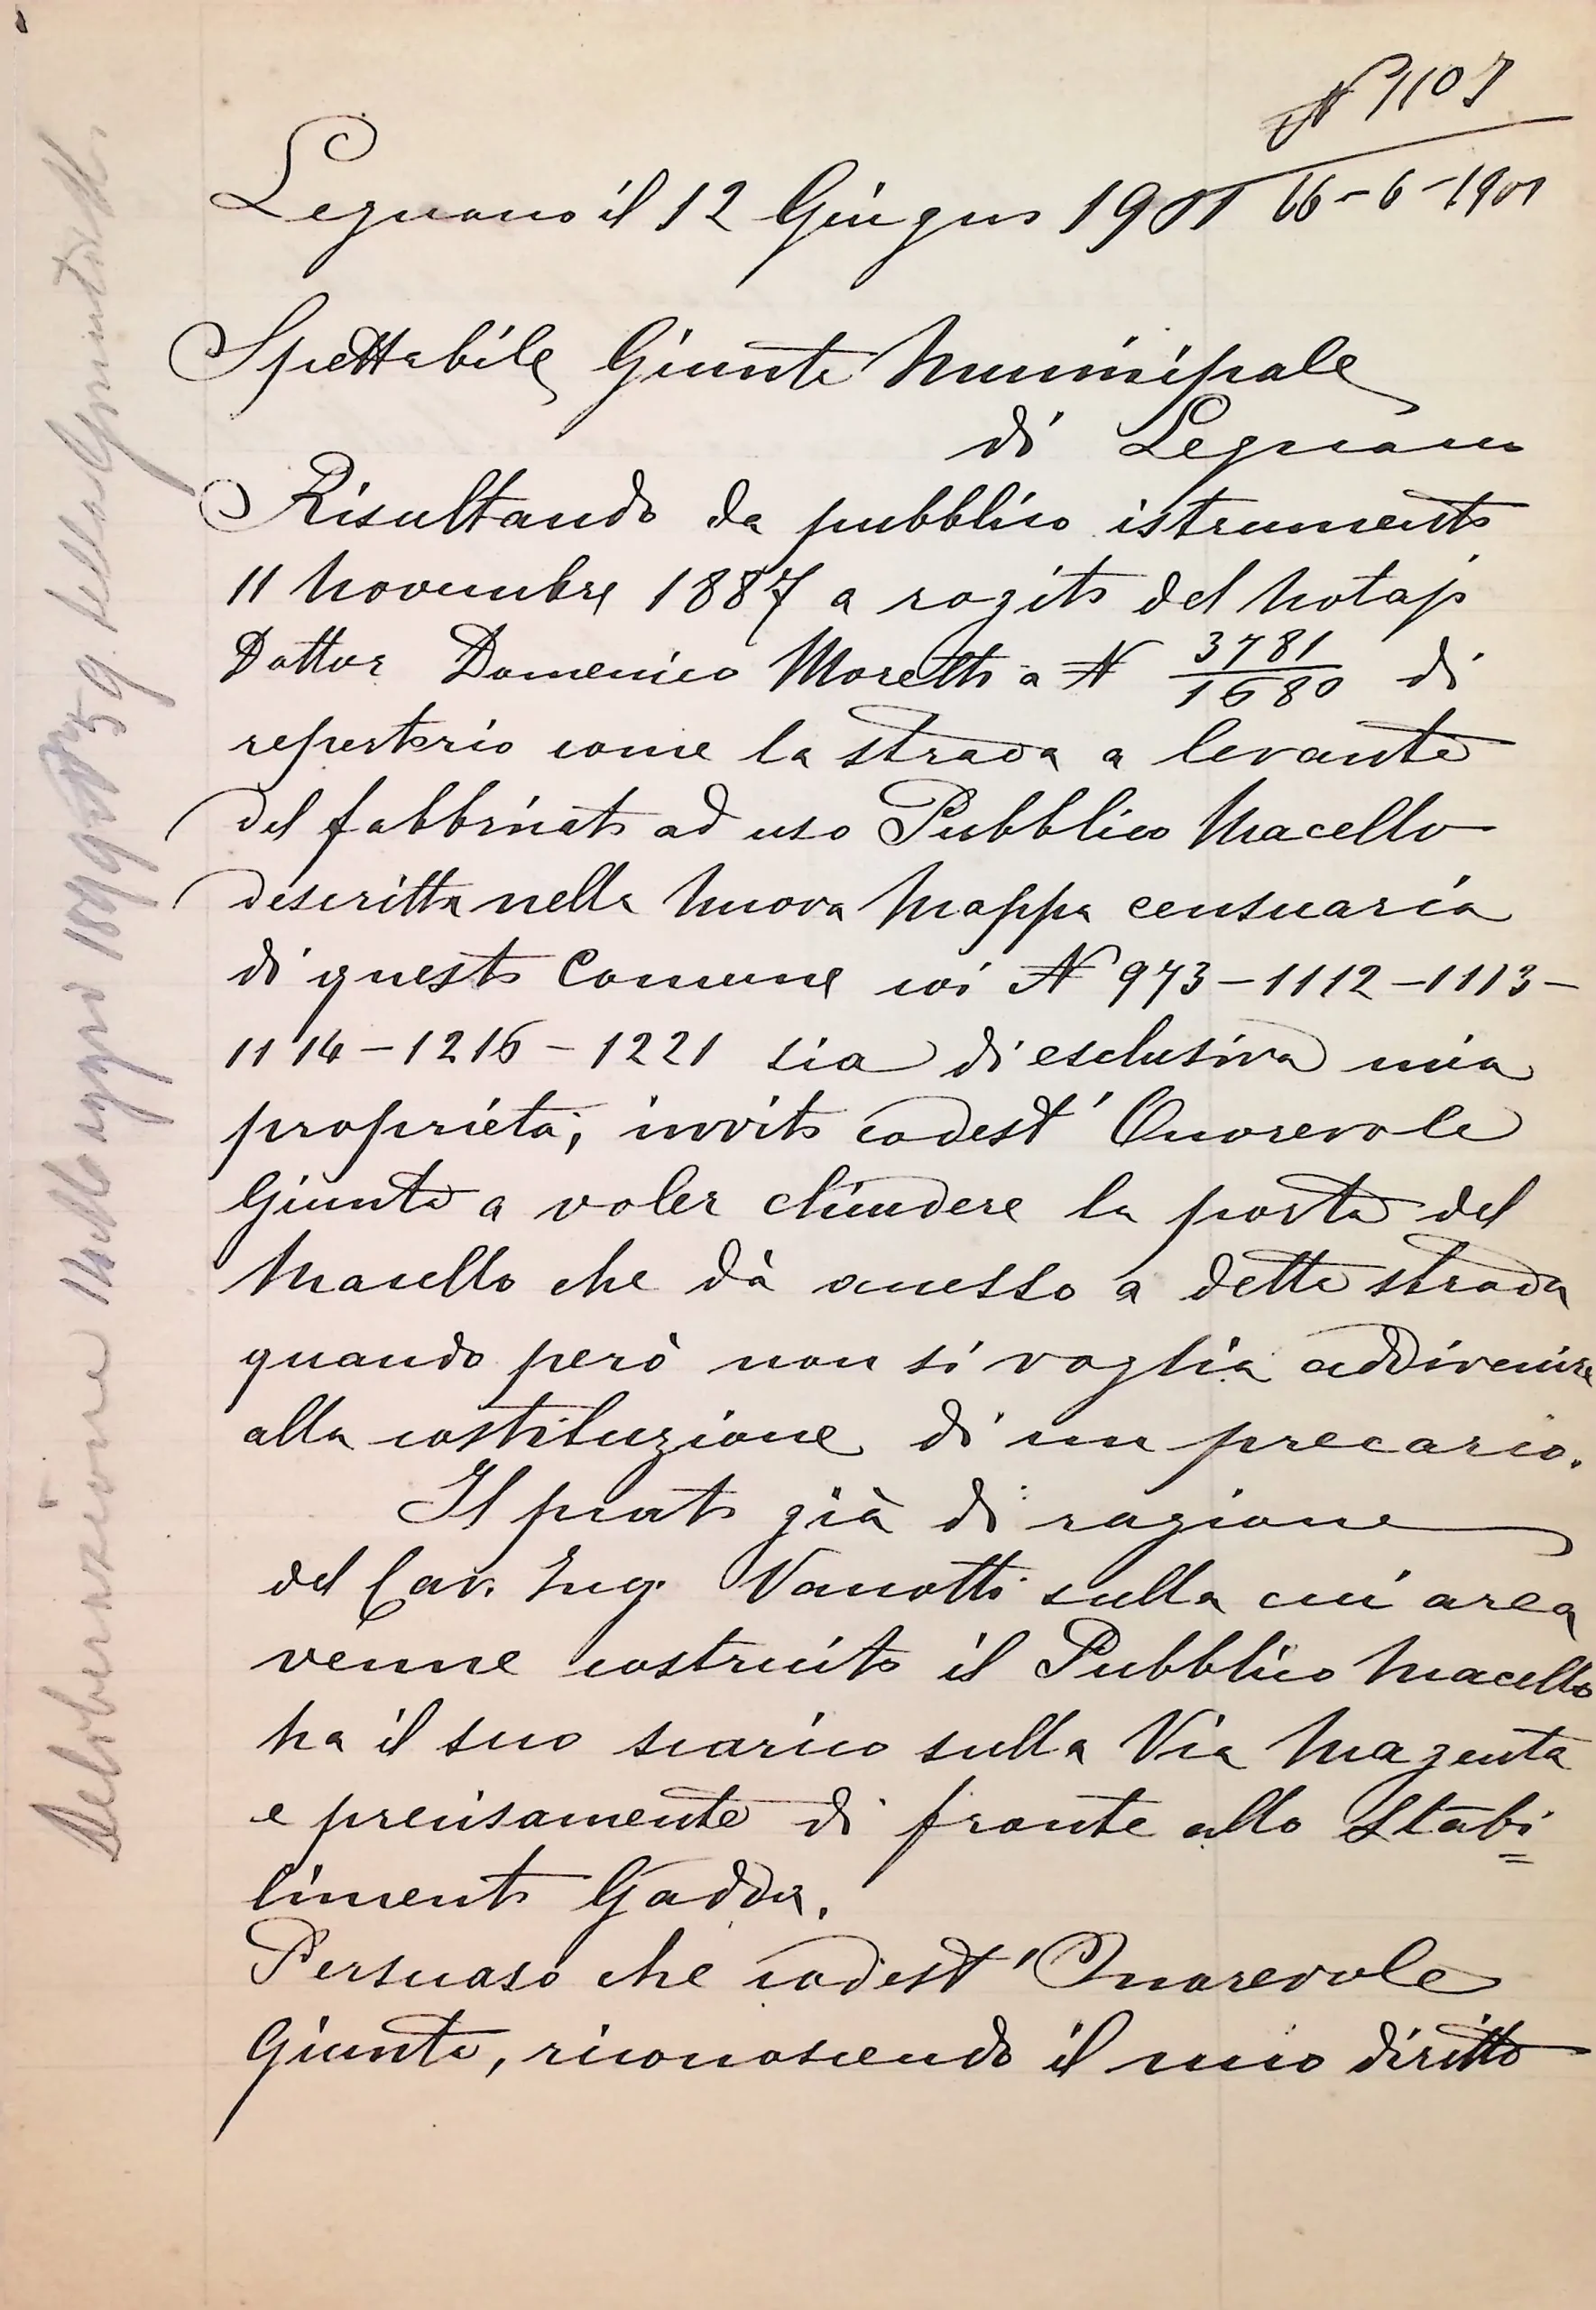 N 1107
16-6-1901
Legnano il 12 Giugno 1901
Spettabile Giunta Municipale
di Legnano
Risultando da pubblico istrumento
11 Novembre 1887 a rogito del Notajo
Dottor Domenico Moretti a N 3781/1680 di
repertorio come la strada a levante
del fabbricato ad uso Pubblico Macello
descritta nella Nuova Mappa censuaria
di questo Comune coi N 973-1112-1113-
1114-1216-1221 sia di esclusiva mia
proprietà, invito codest' Onorevole
Giunta a voler chiudere la porta del
Macello che dà accesso a detta strada
quando però non si voglia addivenire
alla costituzione di un precario.
Il prato già di ragione
del Cav. Ing. Vanotti sulla cui area
venne costruito il Pubblico Macello
ha il suo scarico sulla Via Magenta
e precisamente di fronte allo Stabi=
limento Gadda.
Persuaso che codest' Onorevole
Giunta, riconoscendo il mio diritto
Deliberazione 14 Maggio 1899 N 59 della Giunta M.